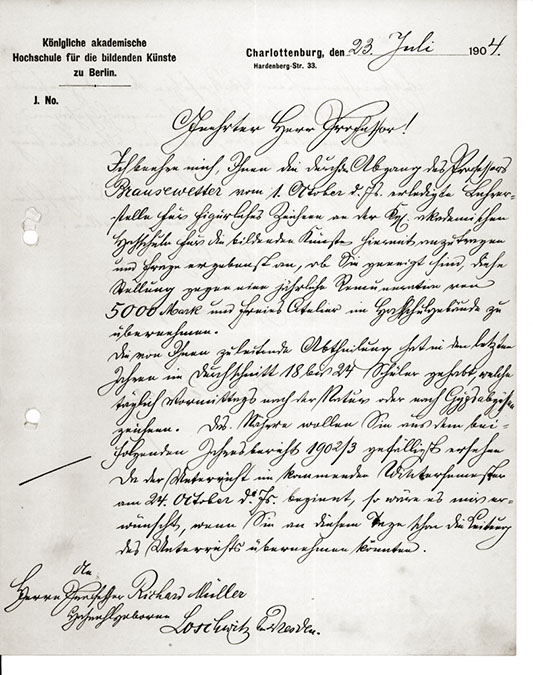 Königliche akademische
Hochschule für die bildenden Künste
zu Berlin.
J. No.
Charlottenburg, den 23. Juli 1904.
Hardenberg-Str. 33.
Geehrter Herr Professor!
Ich beehre mich, Ihnen die durch Abgang des Professors
Brausewetter vom 1. Oktober d. Js. erledigte Lehrer-
stelle für figürliches Zeichnen an der Kgl. akademischen
Hochschule für die bildenden Künste hiermit anzutragen
und frage ergebenst an, ob Sie geneigt sind, diese
Stellung gegen eine jährliche Remuneration von
5000 Mark und freies Atelier im Hochschulgebäude zu
übernehmen.
Die von Ihnen zu leitende Abtheilung hat in den letzten
Jahren im Durchschnitt 18 bis 24 Schüler gehabt, welche
täglich Vormittags nach der Natur oder nach Gypsabgüssen
zeichnen. Das Nähere wollen Sie aus dem bei-
folgenden Jahresbericht 1902/3 gefälligst ersehen.
Da der Unterricht im kommenden Wintersemester
am 24. October d. Js. beginnt, so wäre es mir er-
wünscht, wenn Sie an diesem Tage schon die Leitung
des Unterrichts übernehmen könnten.
An
Herrn Professor Richard Müller
Hochwohlgeboren
Loschwitz Dresden.